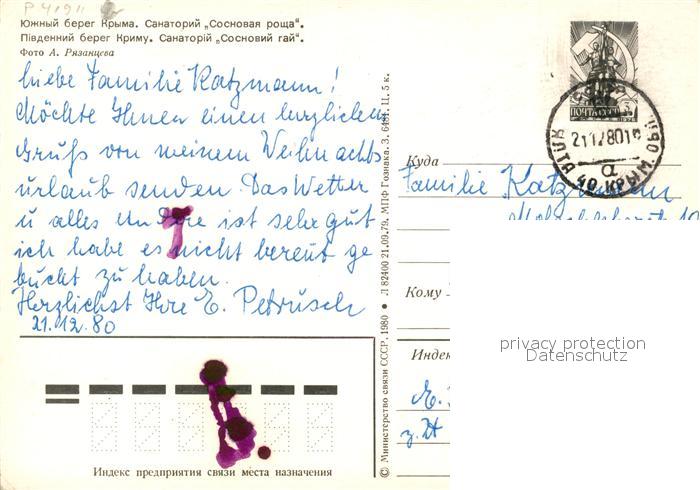 P 4 1911
Южный берег Крыма. Санаторий „Сосновая роща“.
Південний берег Криму. Санаторій „Сосновий гай“.
Фото А. Рязанцева
Liebe Familie Katzmann!
Möchte Ihnen einen herzlichen
Gruß von meinem Weihnachts
urlaub senden. Das Wetter
u alles andere ist sehr gut
ich habe es nicht bereut ge
bucht zu haben.
Herzlichst Ihre E. Petrusch
21.12.80
Индекс предприятия связи места назначения
© Министерство связи СССР, 1980 • Л 82400 21.09.79. МПФ Гознака. З. 6431. Ц. 5 к.
ПОЧТА СССР 3
211280
Куда
Familie Katzmann
Кому
Индекс
privacy protection
Datenschutz
E.
z. Zt